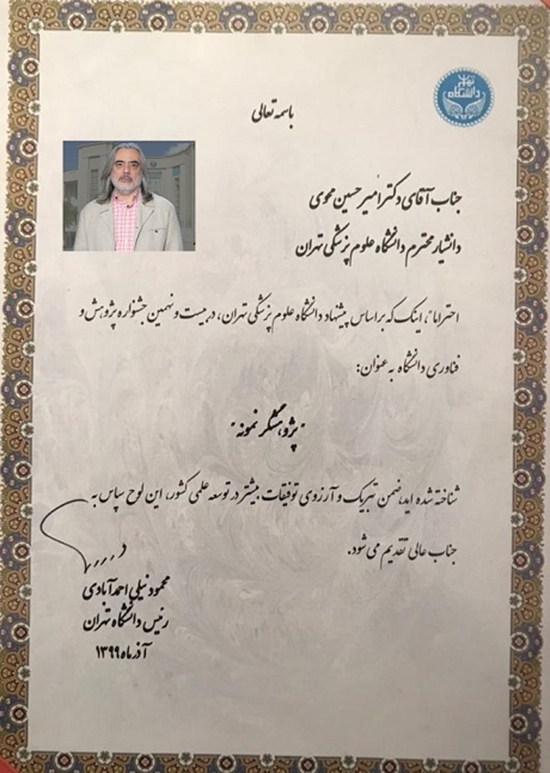 تهران
دانشگاه
باسمه تعالی
جناب آقای دکتر امیرحسین محوی
دانشیار محترم دانشگاه علوم پزشکی تهران
احتراماً، اینک که براساس پیشنهاد دانشگاه علوم پزشکی تهران، در بیست و نهمین جشنواره پژوهش و
فناوری دانشگاه به عنوان:
"پژوهشگر نمونه"
شناخته شده اید، ضمن تبریک و آرزوی توفیقات بیشتر در توسعه علمی کشور، این لوح سپاس به
جناب عالی تقدیم می شود.
محمود نیلی احمدآبادی
رئیس دانشگاه تهران
آذرماه ۱۳۹۹